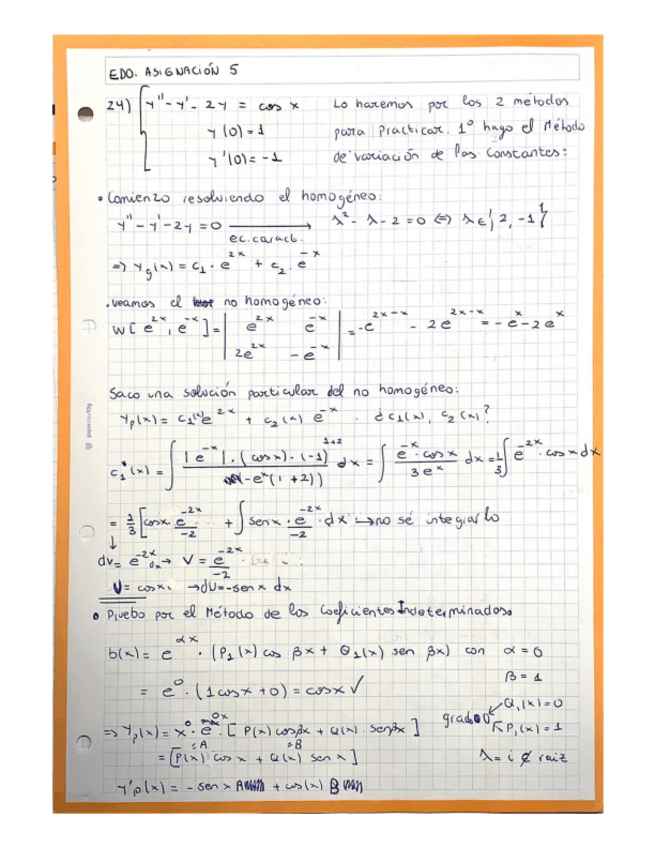 EDO. ASIGNACIÓN 5
24) y'' - y' - 2y = cos x Lo haremos por los 2 métodos
y(0) = 1 para practicar. 1º hago el Método
y'(0) = -1 de variación de las constantes:
• Comienzo resolviendo el homogéneo:
y'' - y' - 2y = 0 ⟶ λ² - λ - 2 = 0 ⟺ λ ∈ {2, -1}
ec. caract.
⇒ y_g(x) = c₁ · e^{2x} + c₂ · e^{-x}
• veamos el no homogéneo:
W[e^{2x}, e^{-x}] = | e^{2x} e^{-x} | = -e^{2x-x} - 2e^{2x-x} = -e^x - 2e^x
| 2e^{2x} -e^{-x} |
Saco una solución particular del no homogéneo:
y_p(x) = c₁(x) e^{2x} + c₂(x) e^{-x} . ¿c₁(x), c₂(x)?
c₁*(x) = ∫ |e^{-x}| · (cos x) · (-1)^{1+2} / -e^x(1+2)) dx = ∫ e^{-x} · cos x / 3e^x dx = 1/3 ∫ e^{-2x} · cos x dx
= 1/3 [cos x · e^{-2x}/-2 + ∫ sen x · e^{-2x}/-2 · dx → no sé integrarlo
dv = e^{-2x} dx → V = e^{-2x}/-2
U = cos x → dU = -sen x dx
• Pruebo por el Método de los Coeficientes Indeterminados.
b(x) = e^{αx} · (P₁(x) cos βx + Q₁(x) sen βx) con α = 0
β = 1
= e⁰ · (1 cos x + 0) = cos x ✓ Q₁(x) = 0
⇒ y_p(x) = x⁰ · e^{0x} · [P(x) cos βx + Q(x) · sen βx] grado 0 P₁(x) = 1
=A =B
= [P(x) cos x + Q(x) sen x] λ = i ∉ raiz
y'p(x) = - sen x A + cos(x) B